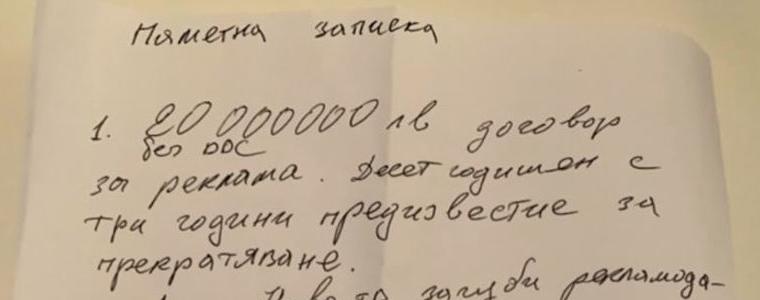 Паметна записка
1. 20 000000 лв договор
без ДДС
за реклама. Десетгодишен с
три години предизвестие за
прекратяване.
загуби рекламода-